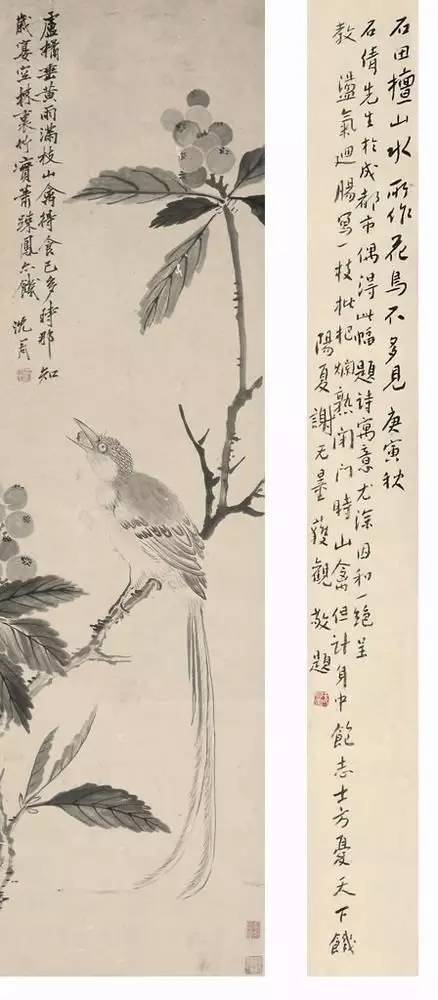 石田檀山水所作花鳥不多見庚寅秋
石倩先生於成都市偶得此幅題詩寓意尤深因和一絕呈
教盪氣迴腸寫一枝枇杷爛熟閉門時山禽但計身中飽志士方憂天下饑
陽夏謝无量獲觀敬題
盧橘垂黃雨滿枝山禽得食已多時那知
歲宴空林裏竹實蕭疎鳳亦饑 沈周